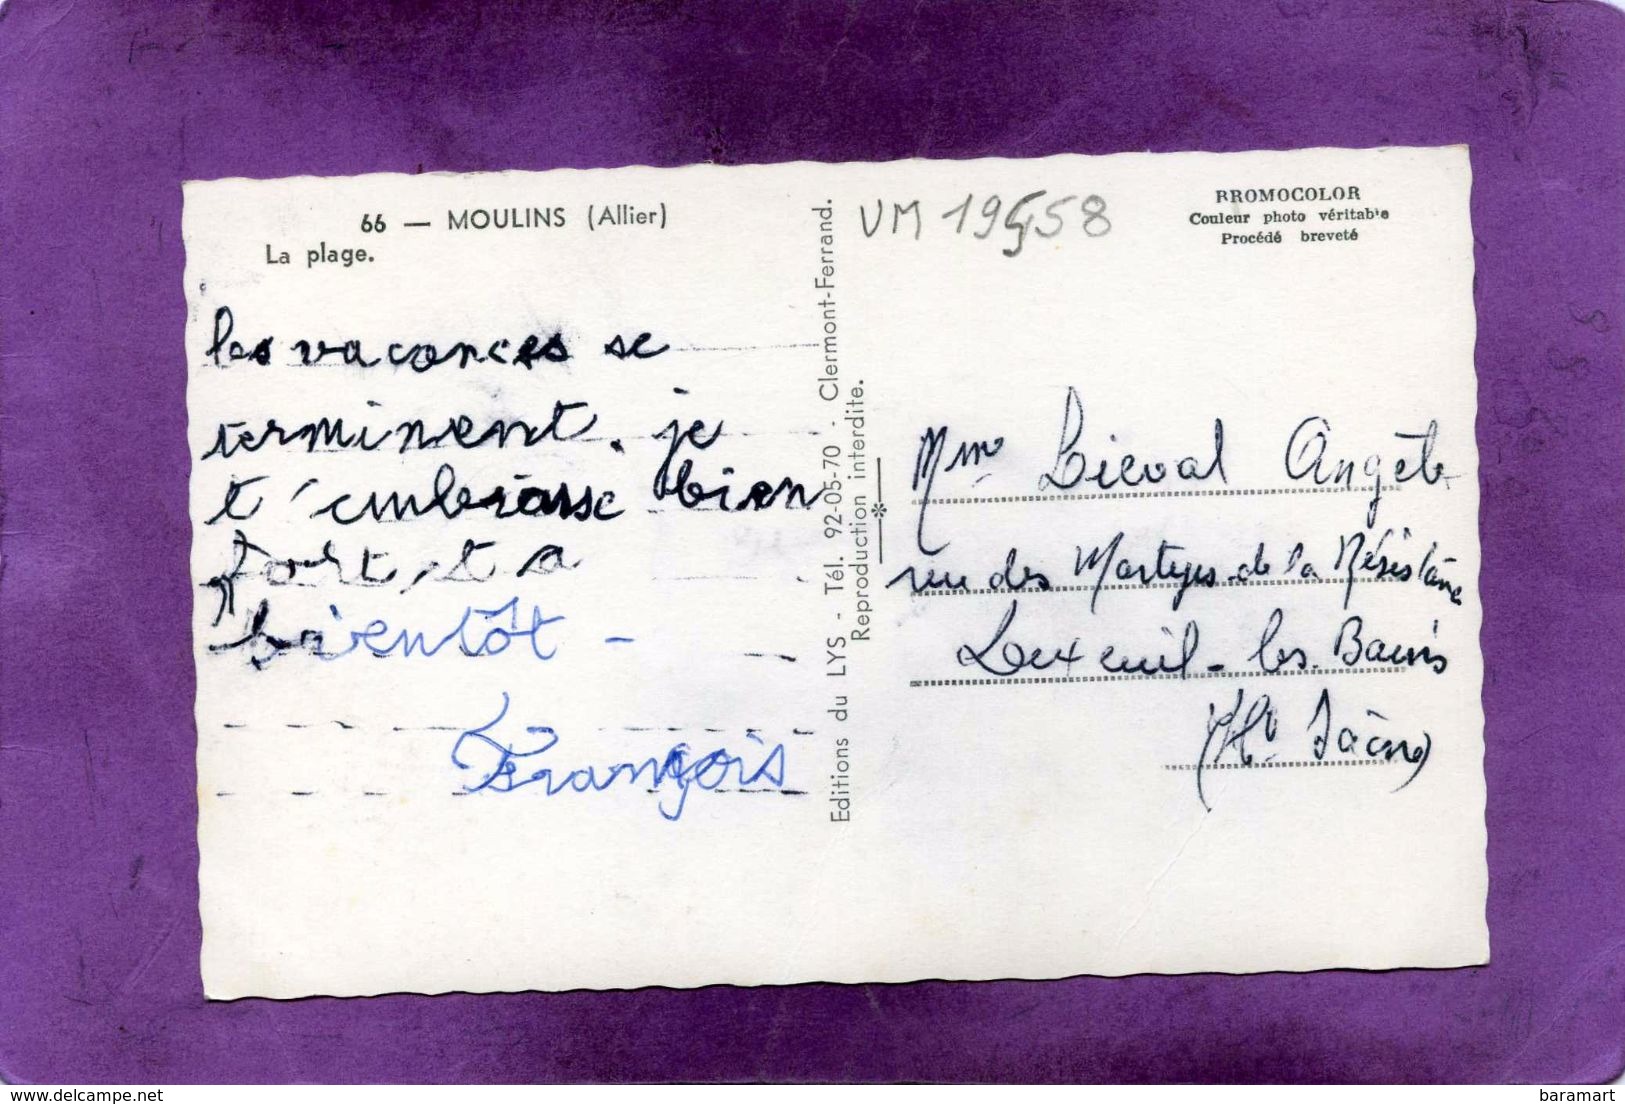 66 — MOULINS (Allier)
La plage.
les vacances se
terminent. je
t'embrasse bien
fort, t a
bientôt -
François
Editions du LYS - Tél. 92-05-70 - Clermont-Ferrand.
Reproduction interdite.
VM 19558
BROMOCOLOR
Couleur photo véritable
Procédé breveté
Mme Lieval Angèle
rue des Martyrs de la Résistance
Luxeuil-les-Bains
(Hte Saône)
delcampe.net
baramart